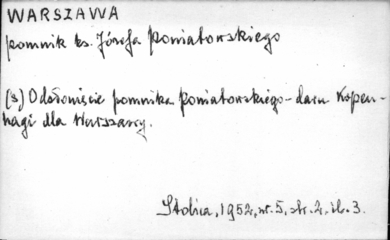 WARSZAWA
pomnik ks. Józefa Poniatowskiego
(s) Odsłonięcie pomnika Poniatowskiego - daru Kopen-
hagi dla Warszawy.
Stolica, 1952, nr. 5, str. 2, il. 3.